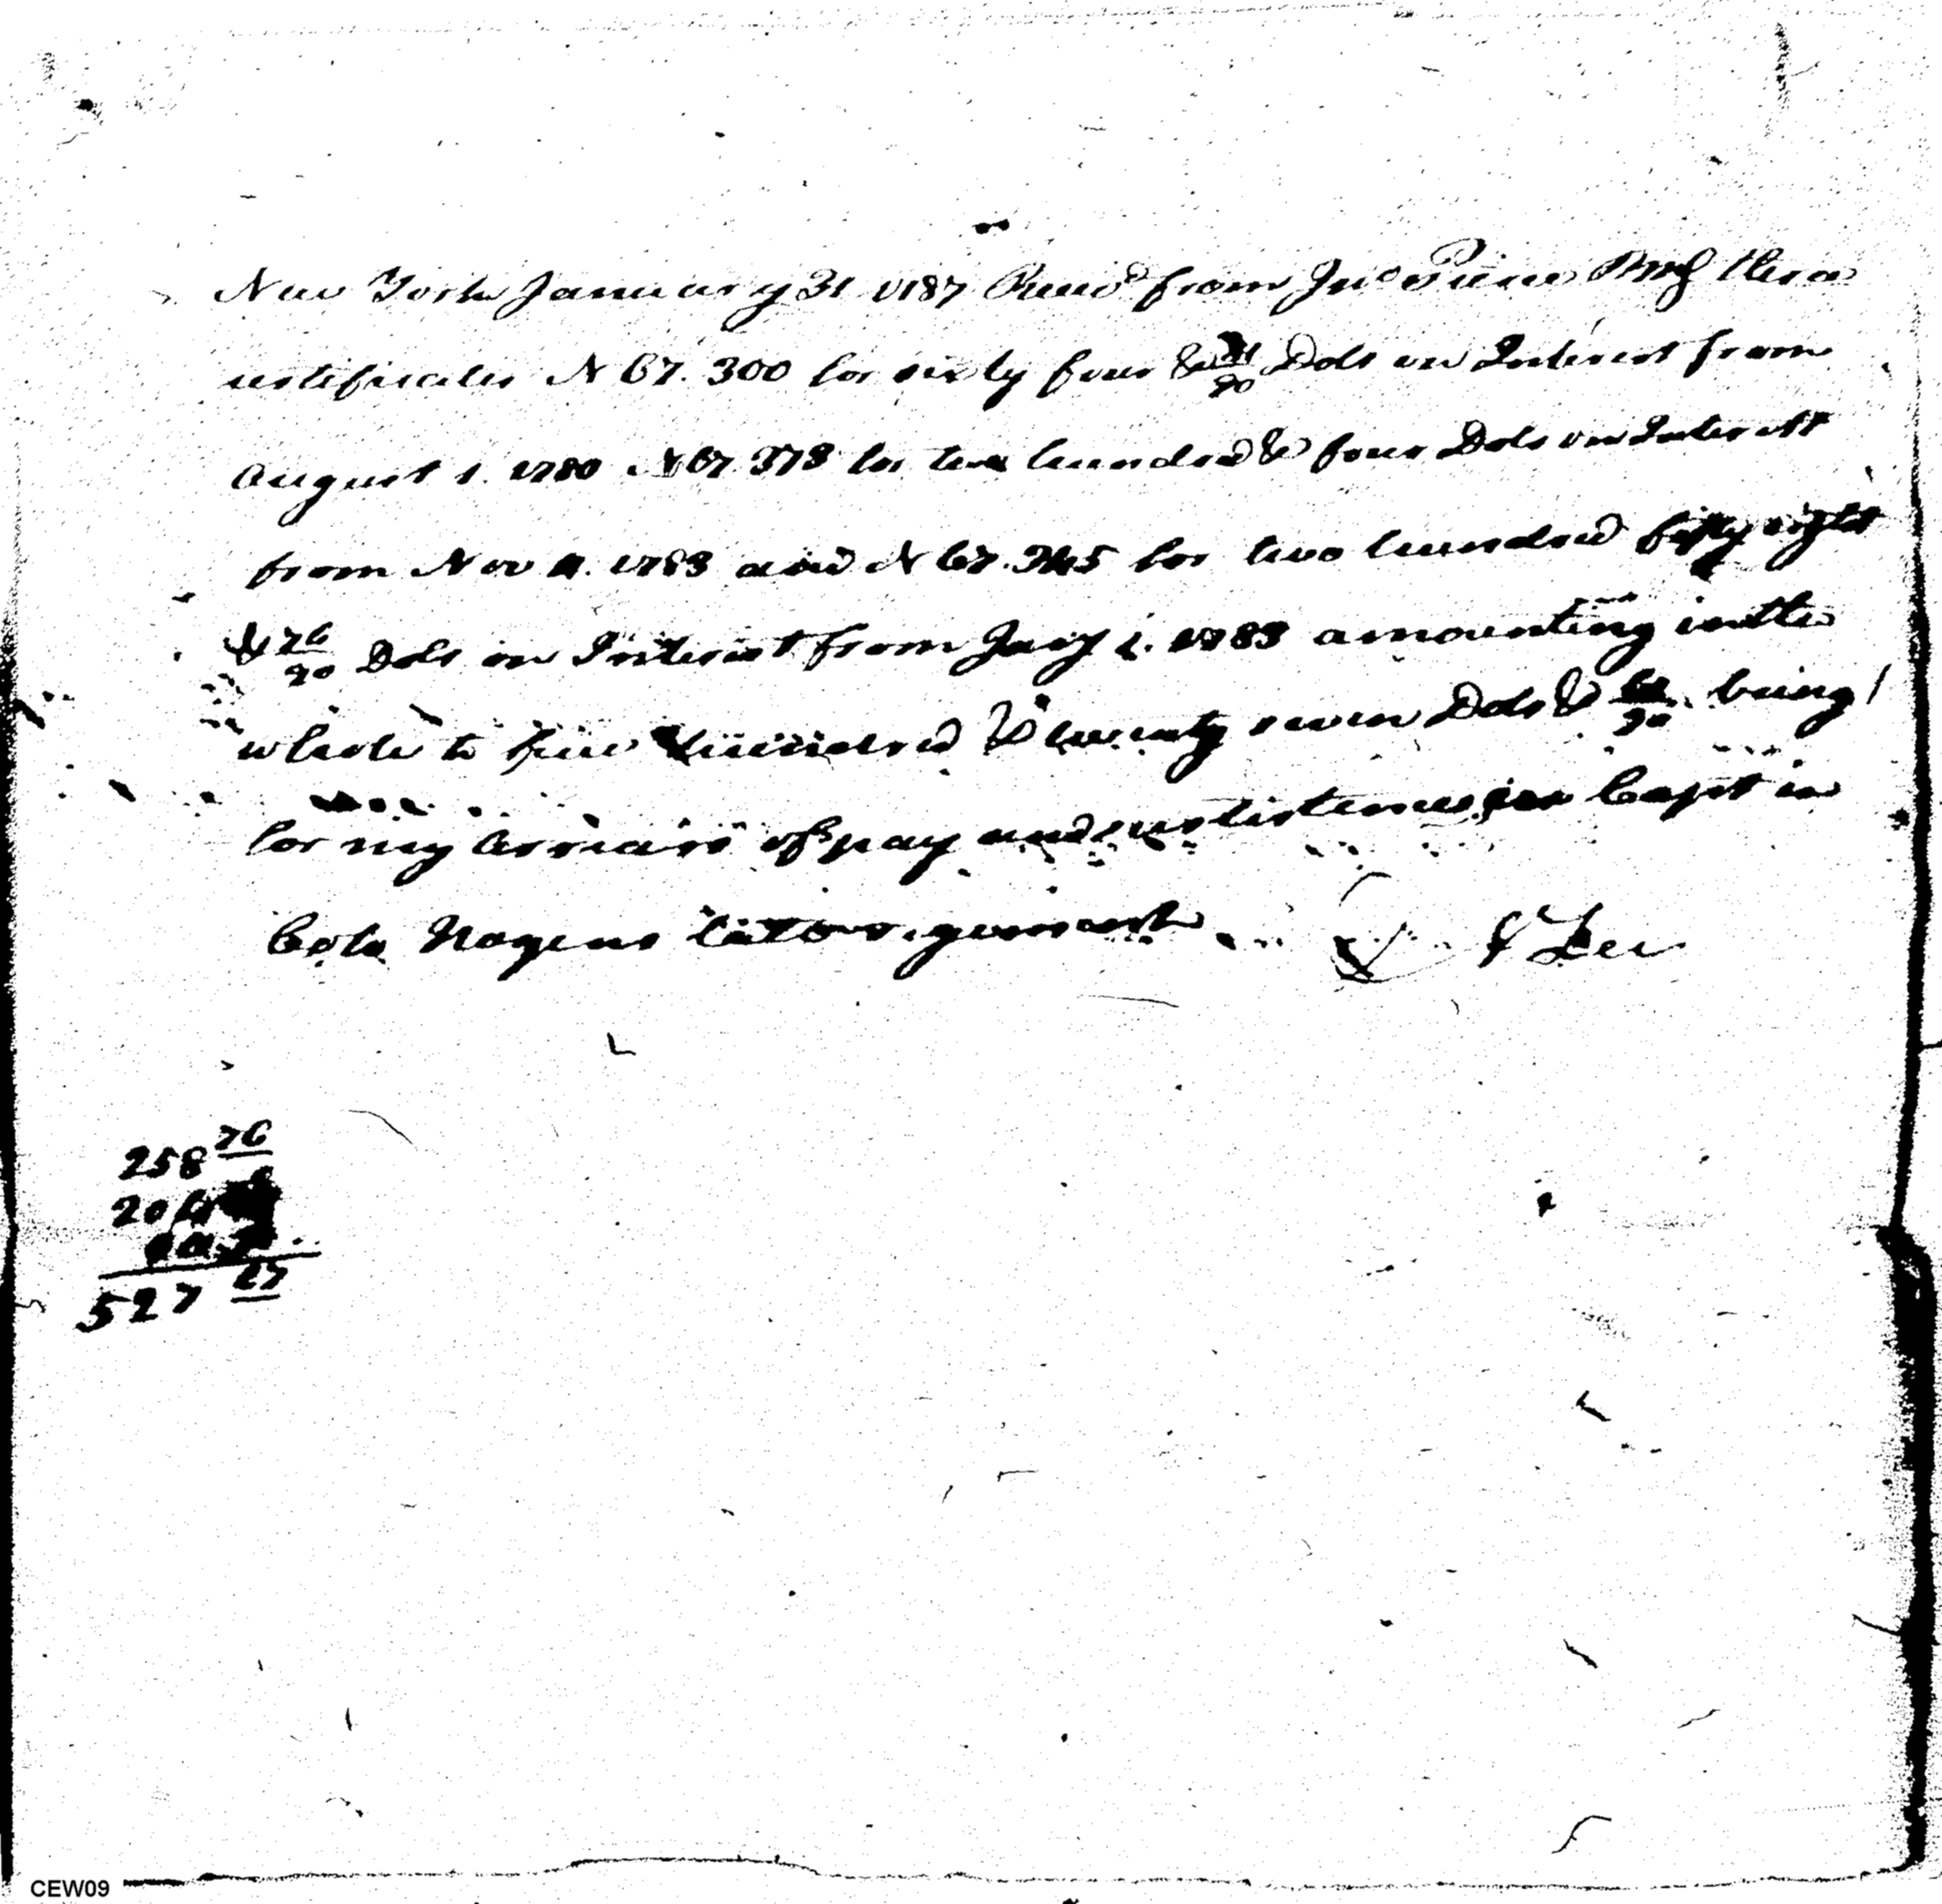 New York January 31 1787 Receiv'd from Jno Pierce three
certificates N 67.300 for sixty four & Dols on Interest from
August 1. 1780 N 67 373 for two hundred & four Dols on Interest
from Nov 4. 1783 and N 67.345 for two hundred fifty eight
& 76/90 Dols on Interest from Jany 1. 1783 amounting in the
whole to five hundred & twenty seven Dols & being
for my Arrears of pay and subsistence as Capt in
Cols Hazens late regiment
Lee
258 76
204
527 27
CEW09